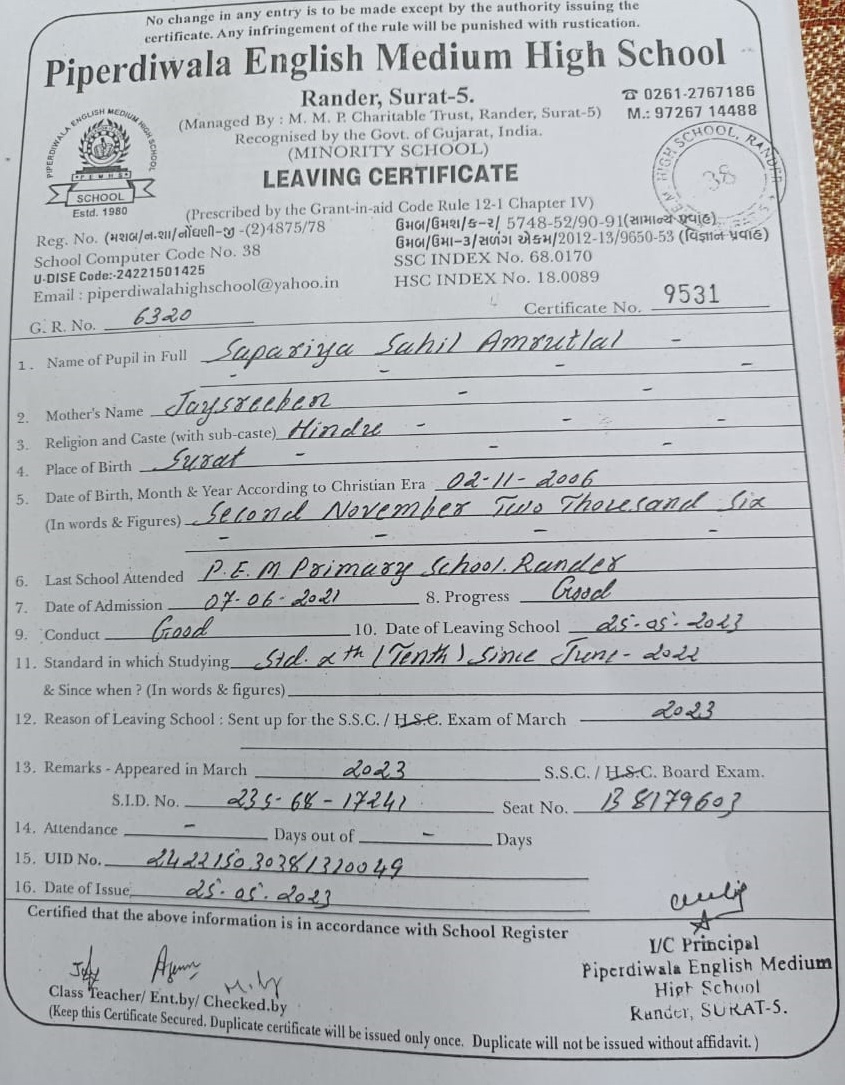 No change in any entry is to be made except by the authority issuing the
certificate. Any infringement of the rule will be punished with rustication.
Piperdiwala English Medium High School
Rander, Surat-5.
☎ 0261-2767186
(Managed By : M. M. P. Charitable Trust, Rander, Surat-5)
M.: 97267 14488
Recognised by the Govt. of Gujarat, India.
(MINORITY SCHOOL)
LEAVING CERTIFICATE
PIPERDIWALA ENGLISH MEDIUM HIGH SCHOOL
P E M H S
SCHOOL
Estd. 1980
HIGH SCHOOL, RANDER
38
(Prescribed by the Grant-in-aid Code Rule 12-1 Chapter IV)
Reg. No. (મશબ/ન.શા/નોંધણી-જી -(2)4875/78
ઉમબ/ઉમશ/ક-૨/ 5748-52/90-91(સામાન્ય પ્રવાહ)
School Computer Code No. 38
ઉમબ/ઉમા-૩/સળંગ એકમ/2012-13/9650-53 (વિજ્ઞાન પ્રવાહ)
U-DISE Code:-24221501425
SSC INDEX No. 68.0170
Email : piperdiwalahighschool@yahoo.in
HSC INDEX No. 18.0089
G. R. No. 6320
Certificate No. 9531
1. Name of Pupil in Full Sapariya Sahil Amrutlal -
- - - -
2. Mother's Name Jaysreeben - -
3. Religion and Caste (with sub-caste) Hindu - - -
4. Place of Birth Surat - - -
5. Date of Birth, Month & Year According to Christian Era 02-11-2006
(In words & Figures) Second November Two Thousand Six
- - - -
6. Last School Attended P.E.M Primary School. Rander
7. Date of Admission 07-06-2021 8. Progress Good
9. Conduct Good 10. Date of Leaving School 25-05-2023
11. Standard in which Studying Std. xth (Tenth) since June-2022
& Since when ? (In words & figures)
12. Reason of Leaving School : Sent up for the S.S.C. / H.S.C. Exam of March 2023
13. Remarks - Appeared in March 2023 S.S.C. / H.S.C. Board Exam.
S.I.D. No. 235-68-17241 Seat No. B 8179603
14. Attendance - Days out of - Days
15. UID No. 242215030381310049
16. Date of Issue 25-05-2023
Certified that the above information is in accordance with School Register
I/C Principal
Piperdiwala English Medium
High School
Rander, SURAT-5.
Class Teacher/ Ent.by/ Checked.by
(Keep this Certificate Secured. Duplicate certificate will be issued only once. Duplicate will not be issued without affidavit. )